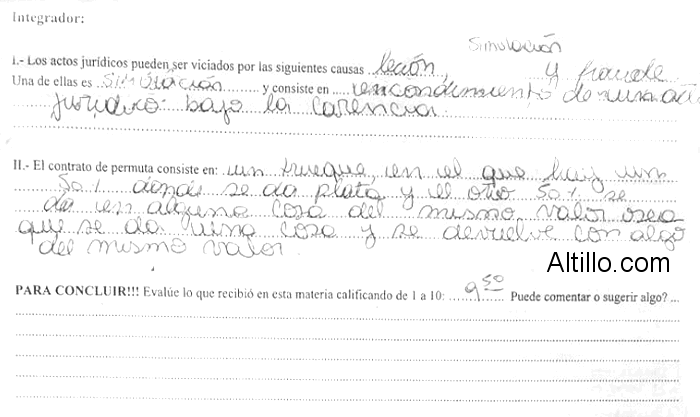 Integrador:
Simulación
I.- Los actos jurídicos pueden ser viciados por las siguientes causas lesión, y fraude
Una de ellas es simulación y consiste en encondimiento de un
jurídico bajo la carencia
II.- El contrato de permuta consiste en: un trueque, en el que hay un
50% donde se da plata y el otro 50% se
da en alguna cosa del mismo valor osea
que se da una cosa y se devuelve con algo
del mismo valor.
Altillo.com
PARA CONCLUIR!!! Evalúe lo que recibió en esta materia calificando de 1 a 10: 9 50 Puede comentar o sugerir algo? ...